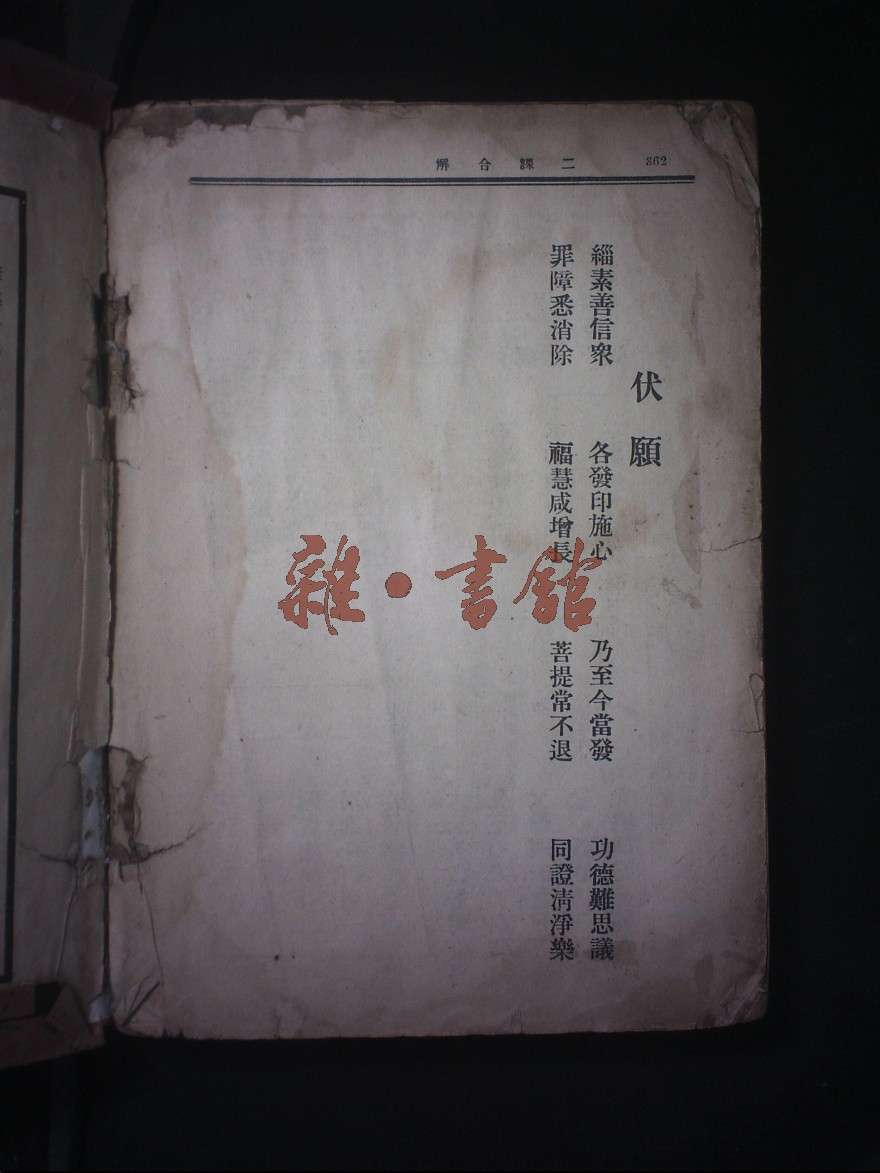 362
二課合解
伏願
緇素善信眾 各發印施心 乃至今當發 功德難思議
罪障悉消除 福慧咸增長 菩提常不退 同證清淨樂
雜·書館